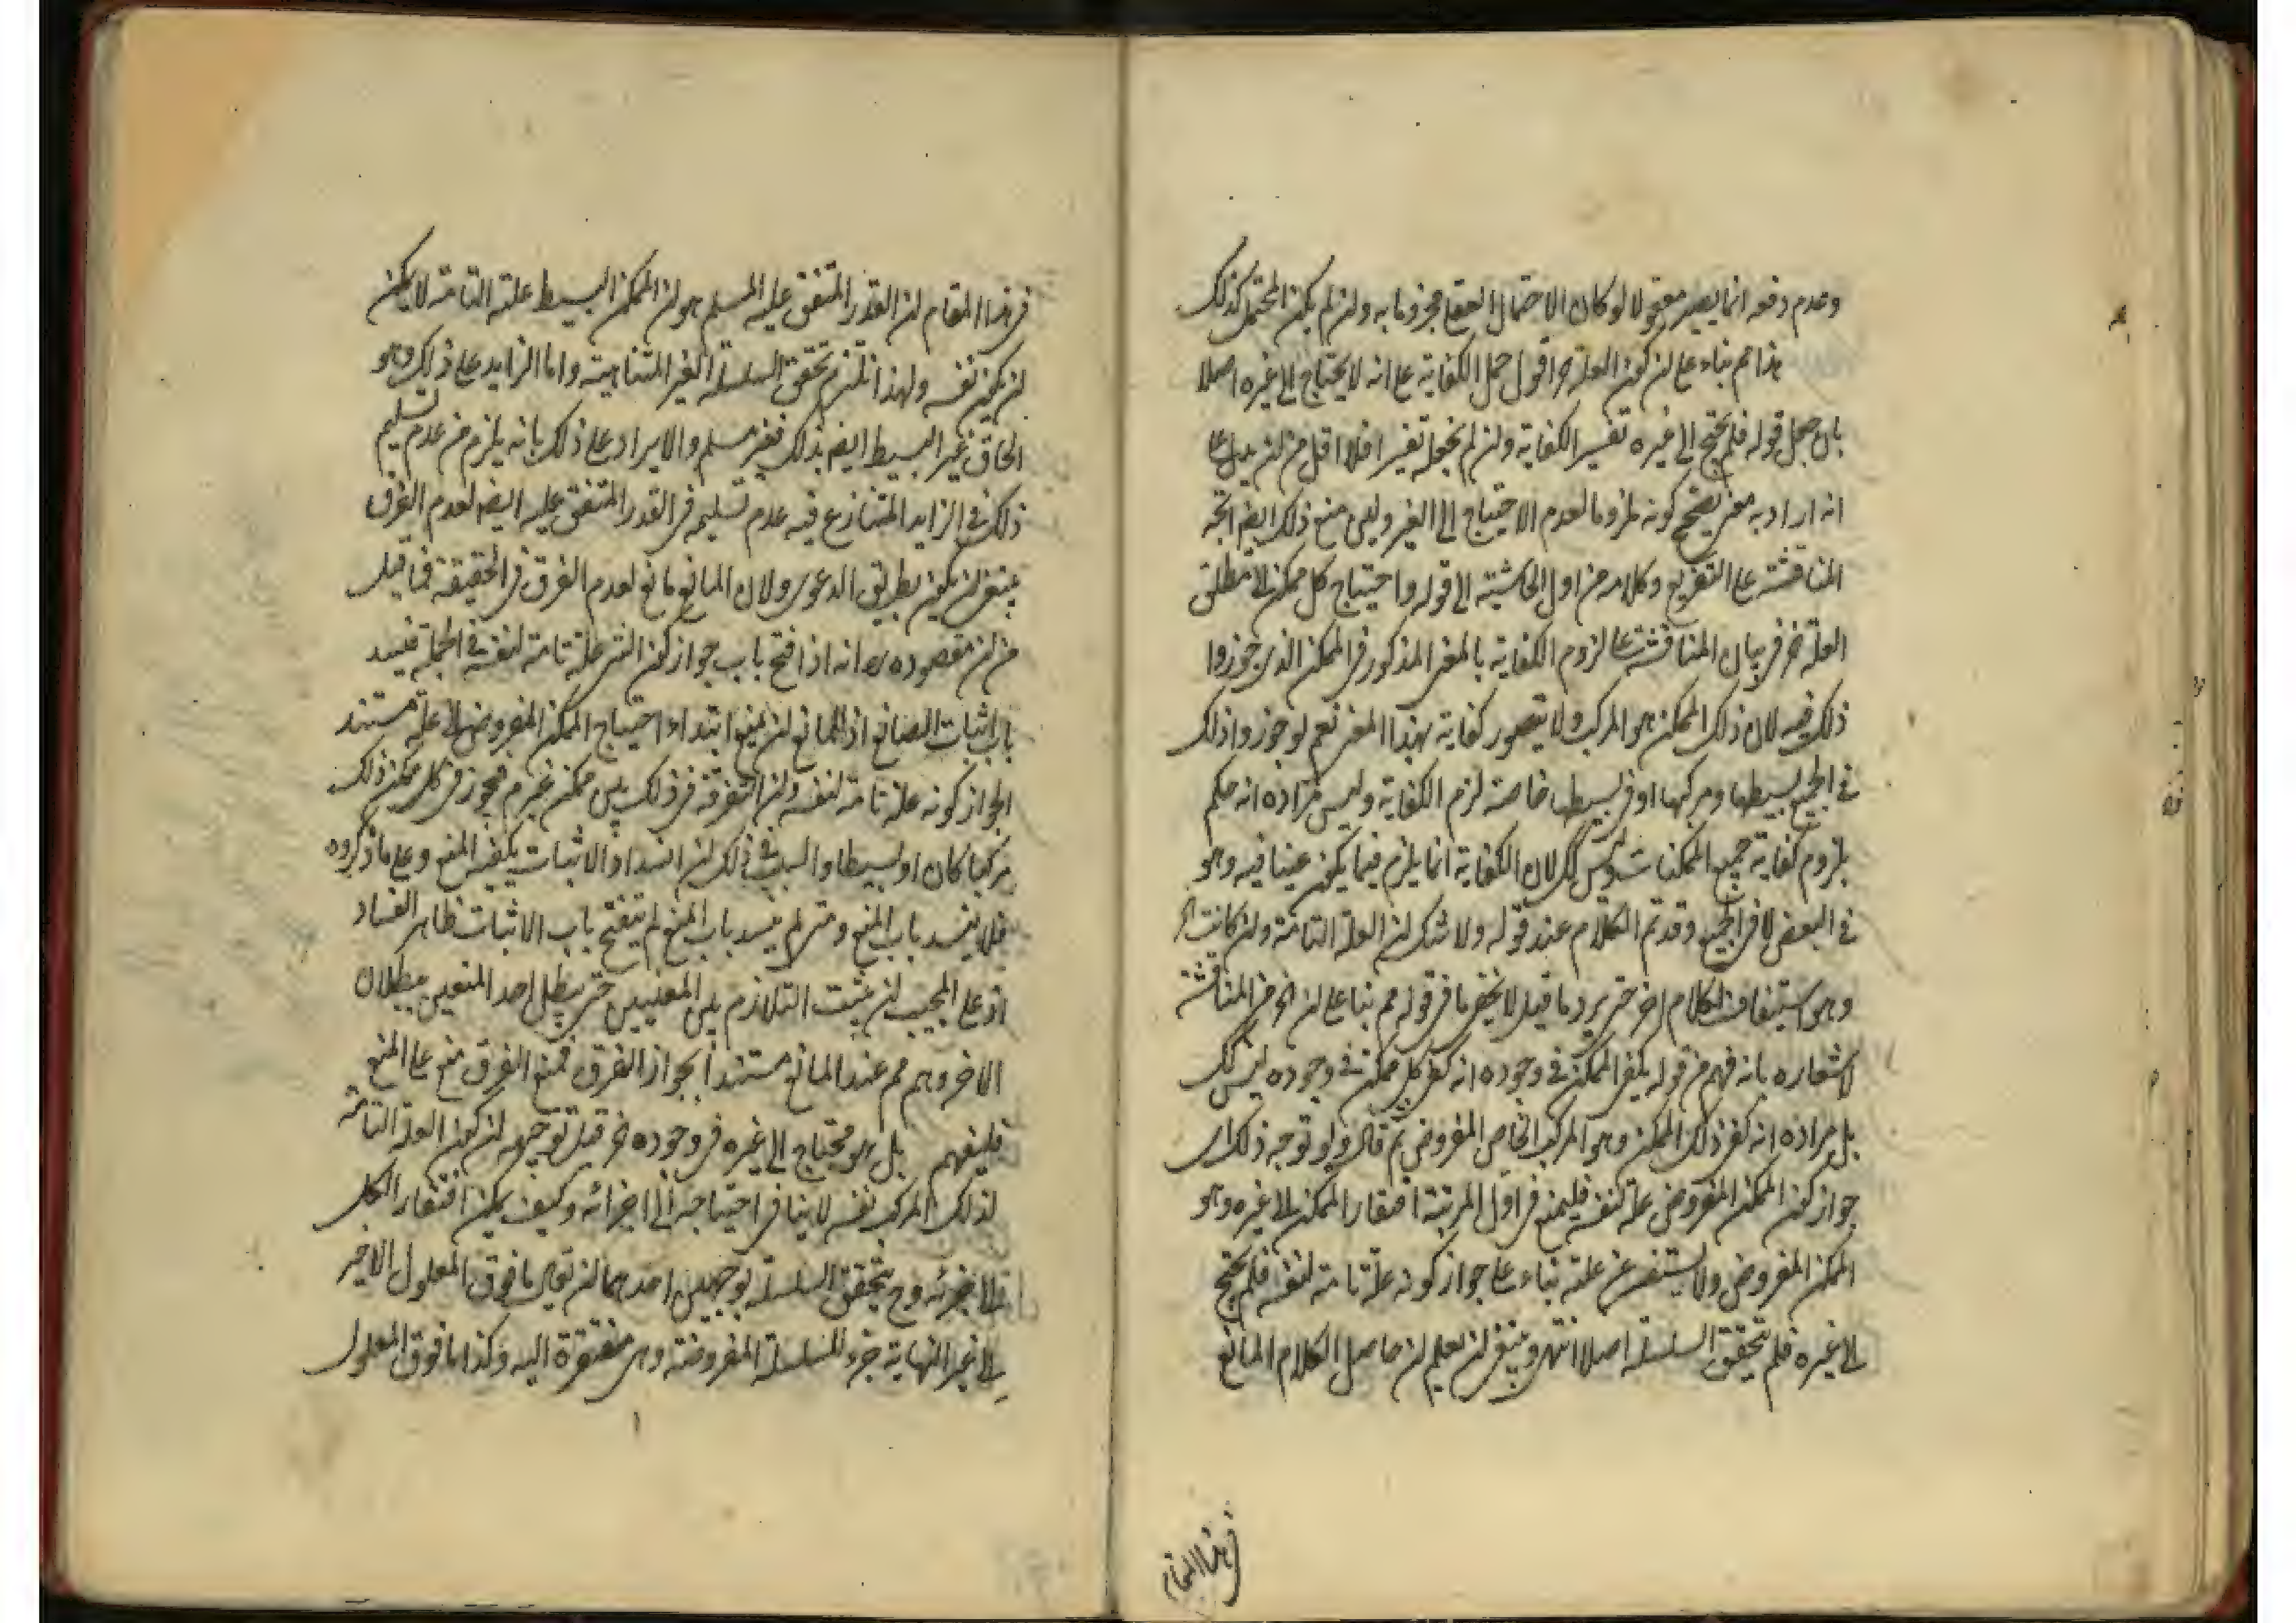 وعدم دفعه انما يصير معقولا لو كان الاحتمال العقلي مجزوما به ولن لم يكن المحتمل كذلك
هذا تم بناء على لن كون العلة اقول حمل الكفاية على انه لا يحتاج الى غيره اصلا
بان جعل قوله فلم يحتج الى غيره تفسير الكفاية ولن لم يجعله تفسيرا فلا اقل من لن يدل على
انه اراد به معنى يصح كونه ملزوما لعدم الاحتياج الى الغير ولعى منع ذلك ايضا اتجه
المناقشة على التفريع وكلامه من اول الحاشية الى قوله واحتياج كل ممكن الى مطلق
العلة في بيان المناقشة على لزوم الكفاية بالمعنى المذكور في الممكن الذى جوزوا
ذلك فيه لان ذلك الممكن هو المركب ولا يتصور كفاية بهذا المعنى نعم لو جوزوا ذلك
في الجميع بسيطها ومركبها او في بسيطها خاصة لزم الكفاية وليس مراده انه حكم
بلزوم كفاية جميع الممكنات وليس كك لان الكفاية انما يلزم فيما يكون عينا فيه وهو
في البعض لا في الجميع وقد تم الكلام عند قوله ولا شك لن العلة التامة ولن كانت
وهو استيناف الكلام اخر حتى يرد ما قيل لا يخفى ما في قوله تم بناء على لن المناقشة
لاشعاره بانه فهم من قوله يكفى الممكن في وجوده انه كفى كل ممكن في وجوده ليس كك
بل مراده انه كفى ذلك الممكن وهو المركب الخاص المفروض ثم قال ولو توجه ذلك اى
جواز كون الممكن المفروض علة لنفسه فليمنع في اول المرتبة افتقار الممكن الى غيره وهو
الممكن المفروض ولا يستفسر عن علته بناء على جواز كونه علة تامة لنفسه فلم يحتج
الى غيره فلم يتحقق السلسلة اصلا انتهى وينبغى لن يعلم لن حاصل الكلام المانع
في هذا المقام
في هذا المقام لن القدر المتفق عليه المسلم هو لن الممكن البسيط علته التامة لا يمكن
لن يكون نفسه ولهذا نلتزم تحقق السلسلة الغير المتناهية واما الزايد على ذلك وهو
الحاق غير البسيط ايضا بذلك فغير مسلم والايراد على ذلك بانه يلزم من عدم تسليم
ذلك في الزايد المتنازع فيه عدم تسليمه في القدر المتفق عليه ايضا لعدم الفرق
ينبغى لن يكون بطريق الدعوى ولان المانع مانع لعدم الفرق في الحقيقة فما قيل
من لن مقصوده انه اذا فتح باب جواز كون الشئ علة تامة لنفسه في الجملة فينسد
باب اثبات الصانع اذ للمانع لن يمنع ابتداء احتياج الممكن المفروض الى علة مستندا
الجواز كونه علة تامة لنفسه ولن التفرقة في ذلك بين ممكن غير م فيجوز في كل ممكن ذلك
مركبا كان او بسيطا والسبب في ذلك لن انسداد الاثبات يكفيه المنع وعلى ما ذكروه
فلا ينسد باب المنع ومتى لم ينسد باب المنع لم ينفتح باب الاثبات ظاهر الفساد
اذ على المجيب لن يثبت التلازم بين المعنيين حتى يبطل احد المنعين ببطلان
الاخر وهو مم عند المانع مستندا بجواز الفرق فمنع الفرق منع على المنع
فليفهم بل هو محتاج الى غيره في وجوده قيل توجيهه لن كون العلة التامة
لذلك المركب نفسه لا ينافى احتياجه الى اجزائه وكيف يمكن افتقار الكل
الى جزئه وح يتحقق السلسلة بوجهين احدهما لن يؤخذ ما فوق المعلول الاخير
الى غير النهاية جزء للسلسلة المفروضة وهى مفتقرة اليه وكذا ما فوق المعلول